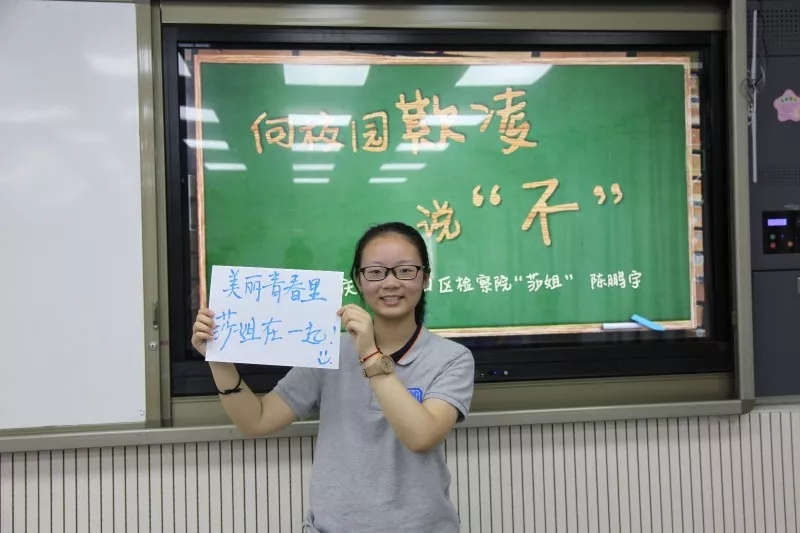 向校园欺凌
说“不”
区检察院“莎姐” 陈鹏宇
美丽青春里
莎姐在一起!